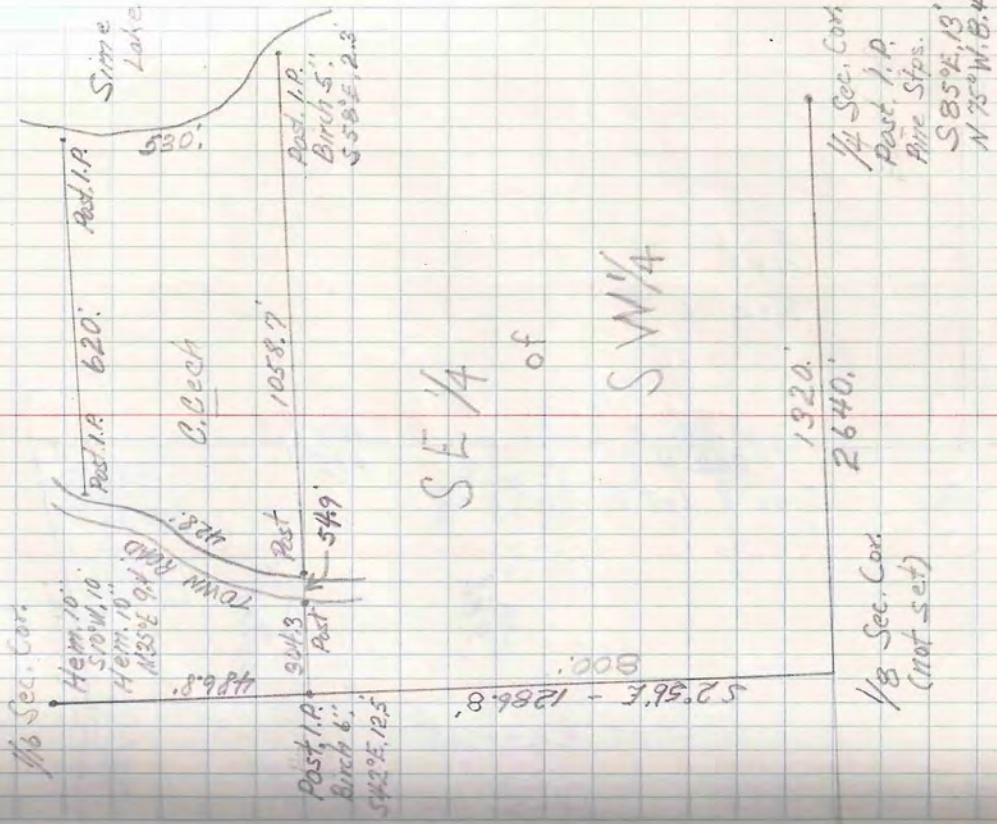 1/16 Sec. Cor.
Hem. 10"
S10°W, 10'
Hem. 10"
N35°E 9.4'
Sime
Lake
Post. I.P. 620.' Post. I.P.
530.'
TOWN ROAD
428.'
C. Cech
486.8.'
364.3
Post
Post
54.9'
1058.7'
Post. I.P.
Birch 5."
S58°E, 2.3'
Post, I.P.
Birch 6."
S42°E, 12.5
SE 1/4
of
SW 1/4
S2°56'E - 1286.8'
800.'
1320.'
2640.'
1/8 Sec. Cor.
(not set)
1/4 Sec. Cor.
Post. I.P.
Pine Stps.
S85°E, 13'